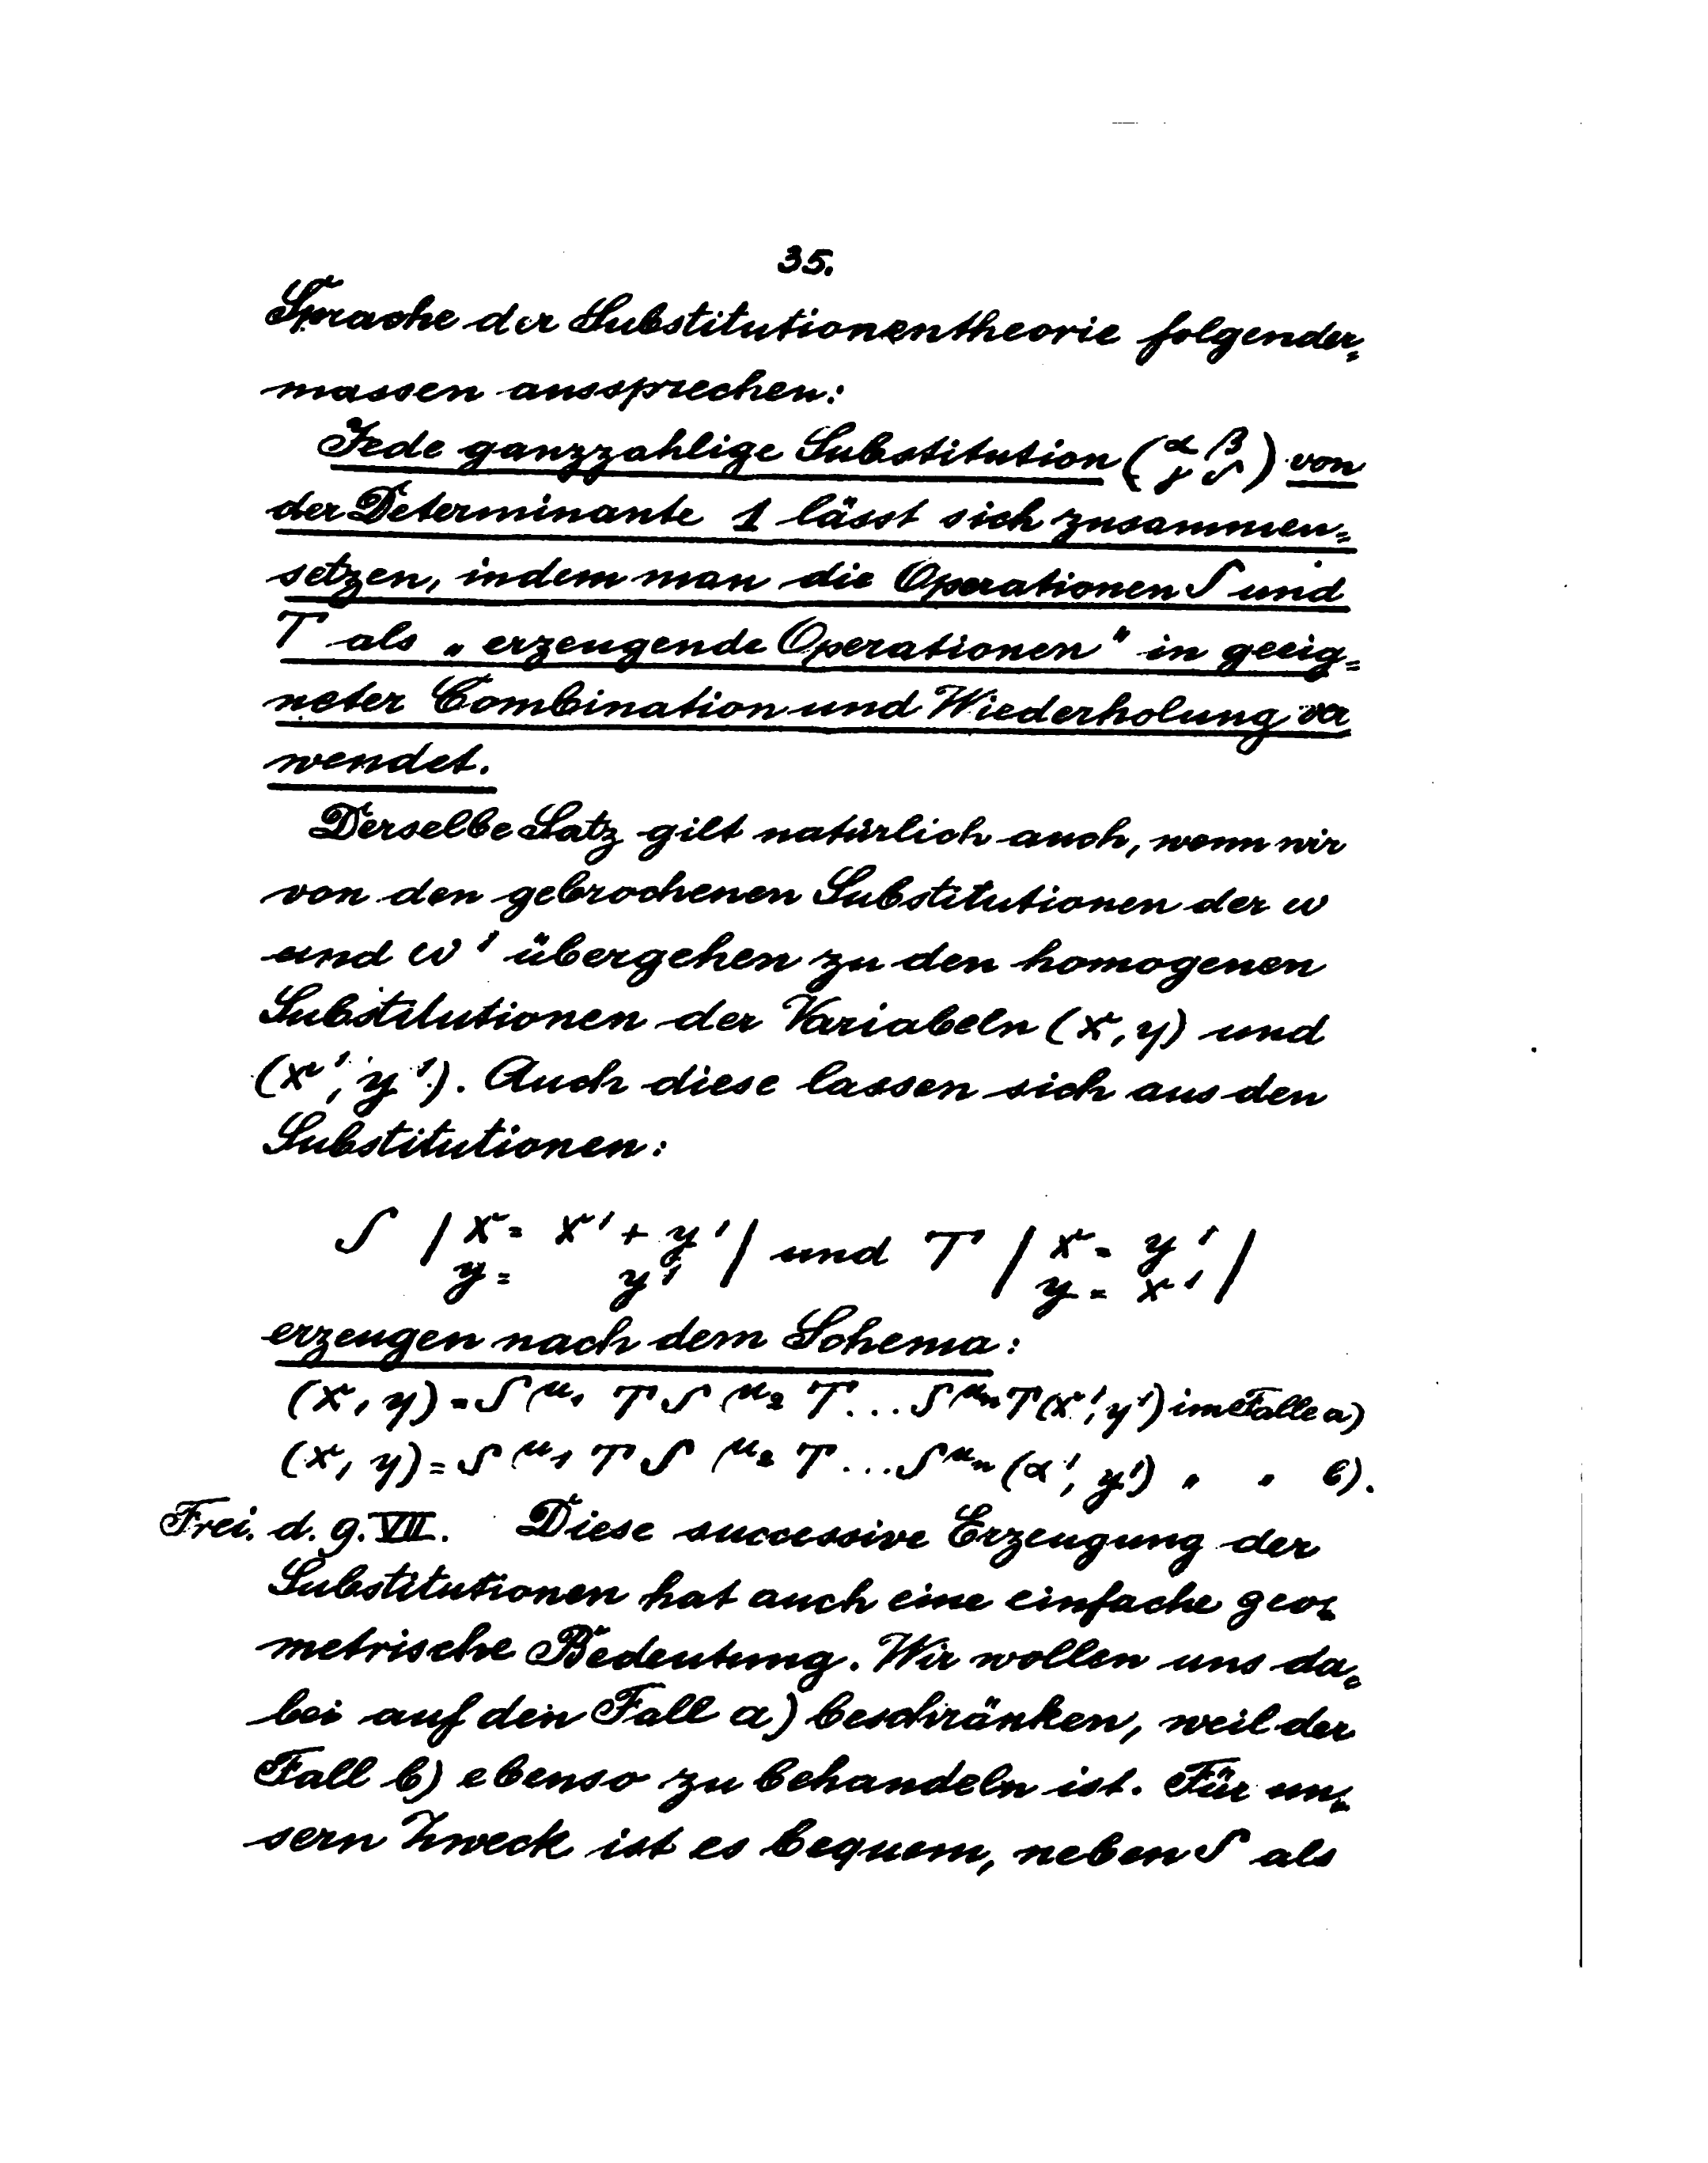 35.
Sprache der Substitutionentheorie folgender=
massen aussprechen:
Jede ganzzahlige Substitution (α β) von
(γ δ)
der Determinante 1 lässt sich zusammen=
setzen, indem man die Operationen S und
T als „erzeugende Operationen" in geeig=
neter Combination und Wiederholung ver
wendet.
Derselbe Satz gilt natürlich auch, wenn wir
von den gebrochenen Substitutionen der ω
und ω' übergehen zu den homogenen
Substitutionen der Variabeln (x, y) und
(x', y'). Auch diese lassen sich aus den
Substitutionen:
S | x = x' + y' | und T | x = y' |
y = y' y = x'
erzeugen nach dem Schema:
(x, y) = S^μ₁ T S^μ₂ T ... S^μₙ T (x', y') im Falle a)
(x, y) = S^μ₁ T S^μ₂ T ... S^μₙ (x', y') " " b).
Frei. d. 9. VII. Diese successive Erzeugung der
Substitutionen hat auch eine einfache geo=
metrische Bedeutung. Wir wollen uns da=
bei auf den Fall a) beschränken, weil der
Fall b) ebenso zu behandeln ist. Für un=
sern Zweck ist es bequem, neben S als